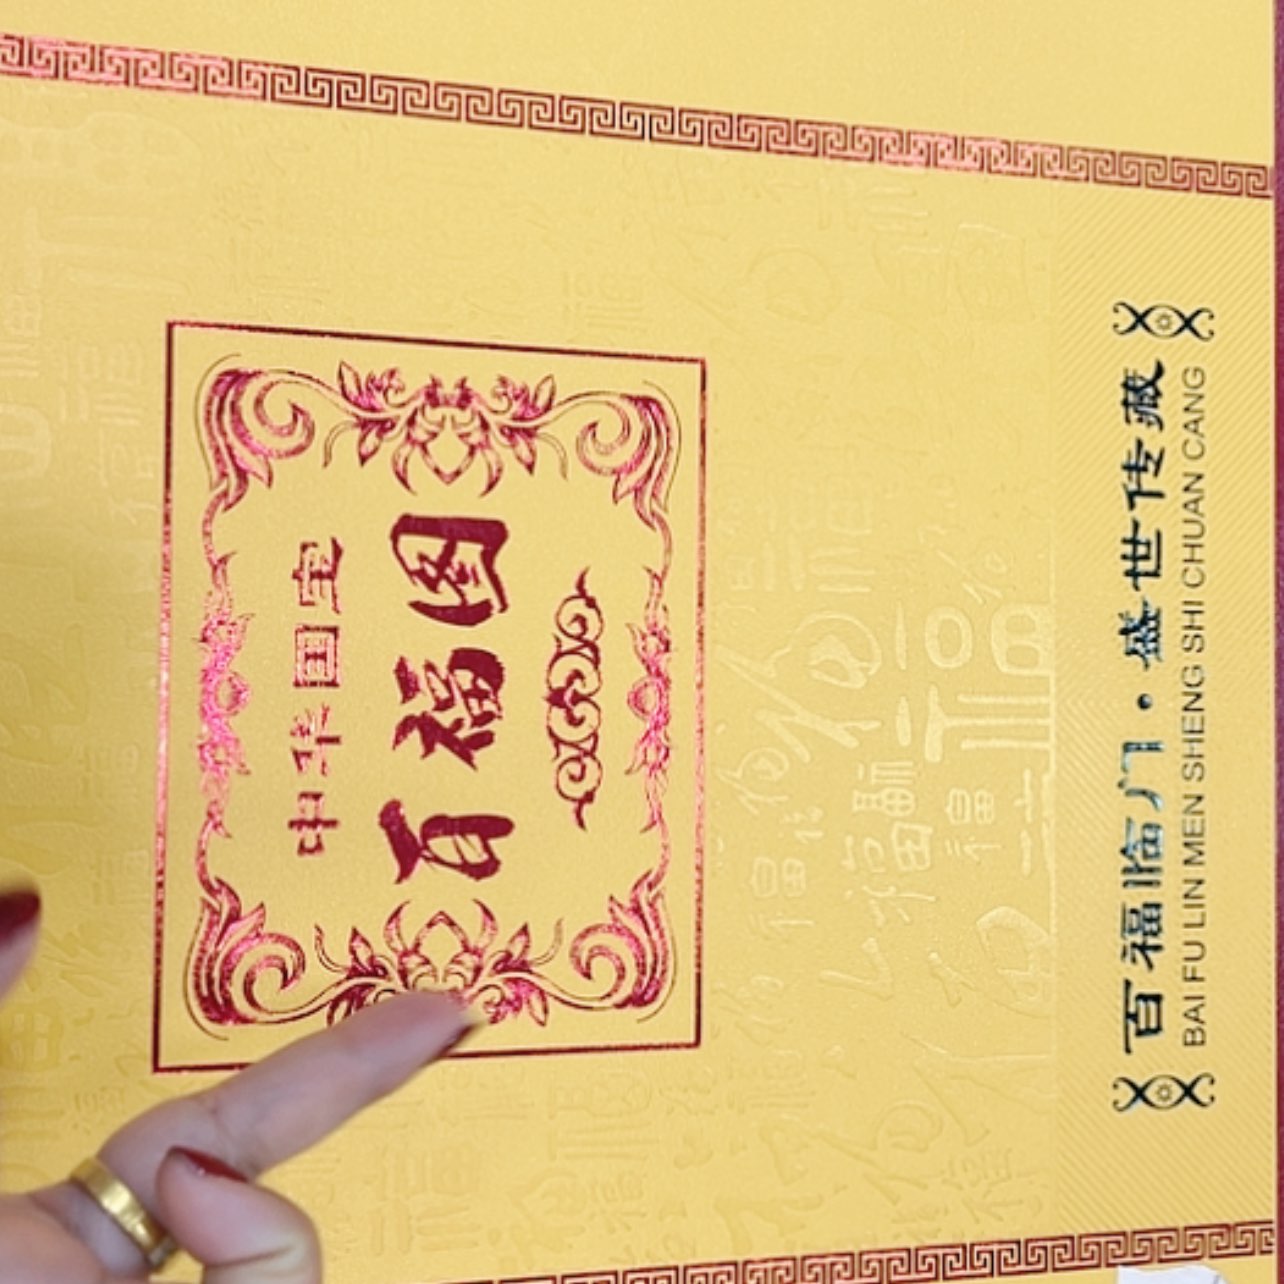 中华国宝
百福图
百福临门·盛世传藏
BAI FU LIN MEN SHENG SHI CHUAN CANG